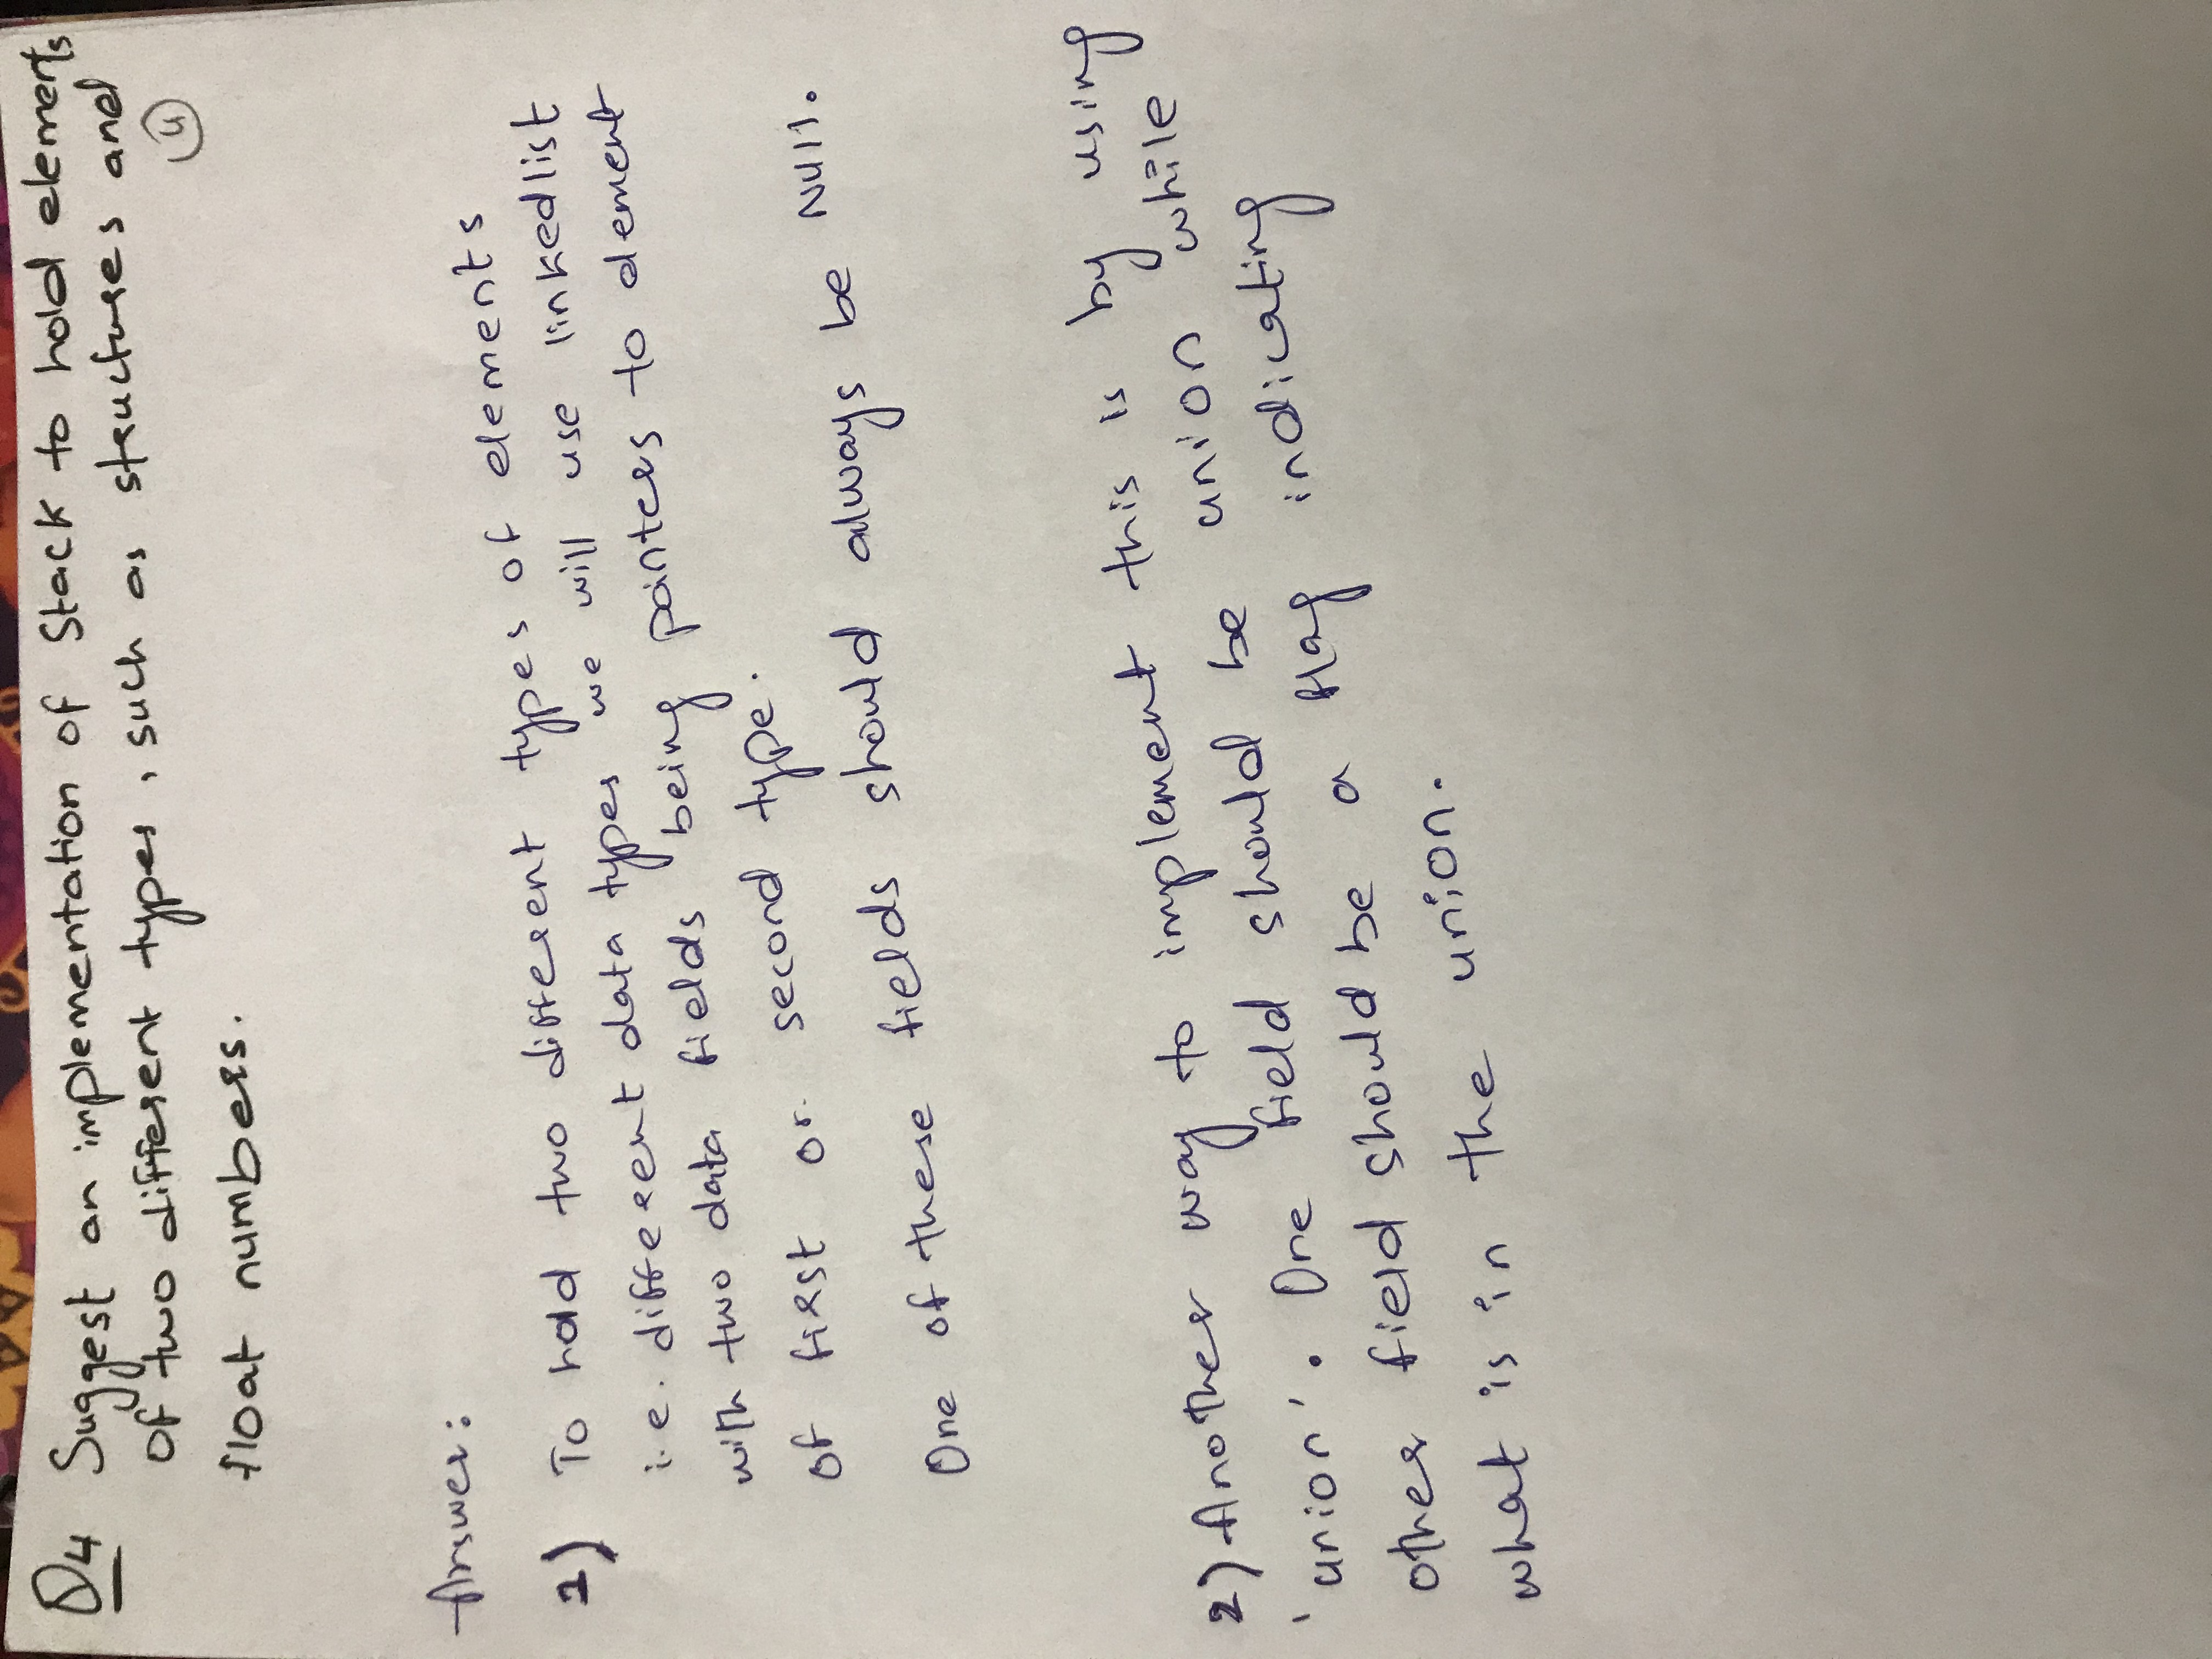 Q4 Suggest an implementation of Stack to hold elements
of two different types, such as structures and
4
float numbers.
Answer:
1) To hold two different types of elements
i.e. different data types we will use linkedlist
with two data fields being pointers to element
of first or second type.
One of these fields should always be Null.
2) Another way to implement this is by using
'union'. One field should be union while
other field should be a flag indicating
what is in the union.